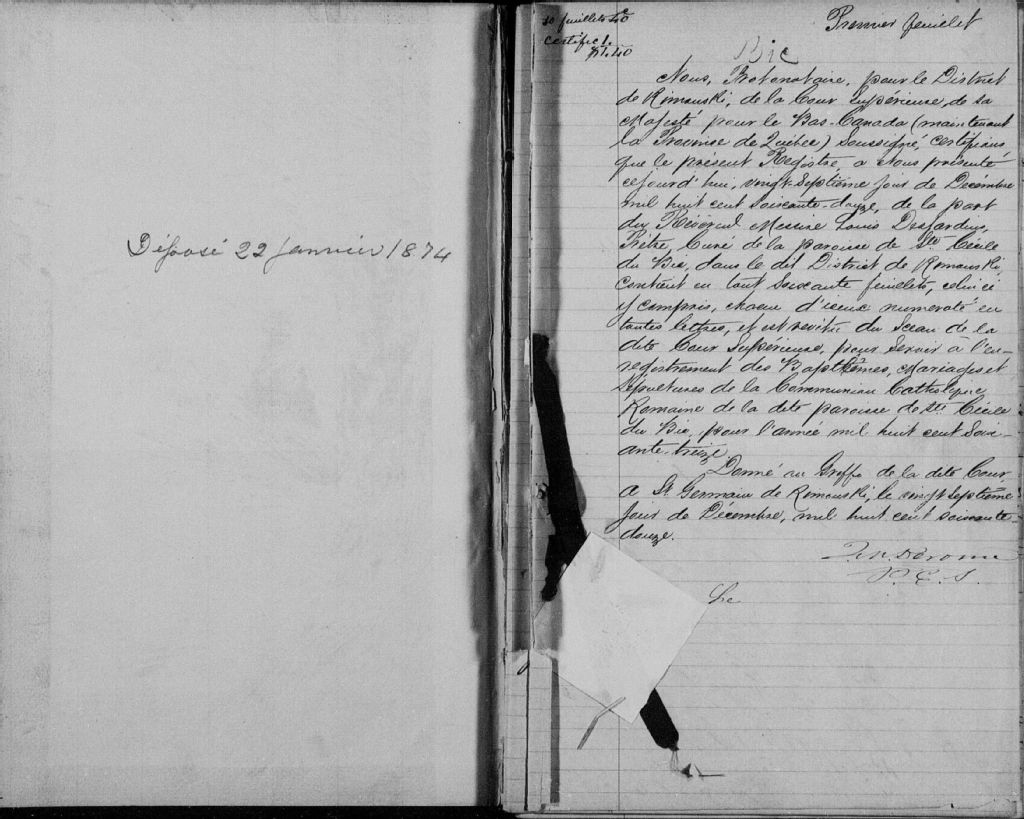 Déposé 22 Janvier 1874
Premier feuillet
Bic
Nous, Protonotaire, pour le District
de Rimouski, de la Cour Supérieure, de sa
Majesté pour le Bas-Canada (maintenant
la Province de Québec) Soussigné, certifions,
que le présent Registre, a Nous présenté
cejourd'hui, vingt-Septième jour de Décembre
mil huit cent soixante-douze, de la part
du Révérend Messire Louis Desjardins,
Prêtre, Curé de la paroisse de Ste Cécile
du Bic, dans le dit District de Rimouski,
contient en tout Soixante feuillets, celui ci
y compris, chacun d'iceux numeroté en
toutes lettres, et est revêtu du Sceau de la
dite Cour Supérieure, pour Servir à l'en-
registrement des Baptêmes, Mariages et
Sépultures de la Communion Catholique
Romaine de la dite paroisse de Ste Cécile
du Bic, pour l'année mil huit cent Soix-
ante-treize
Donné au Greffe de la dite Cour,
a St Germain de Rimouski, le vingt Septième
Jour de Décembre, mil huit cent soixante-
douze.
P. C. S.